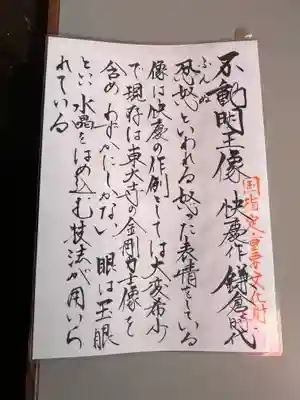 不動明王像 快慶作 鎌倉時代
国指定・重要文化財
ふんぬ
忿怒といわれる怒った表情をしている
像は快慶の作例としては大変希少
で現存は東大寺の金剛力士像を
含めわずかにしかない 眼は玉眼
といい水晶をはめ込む技法が用いら
れている